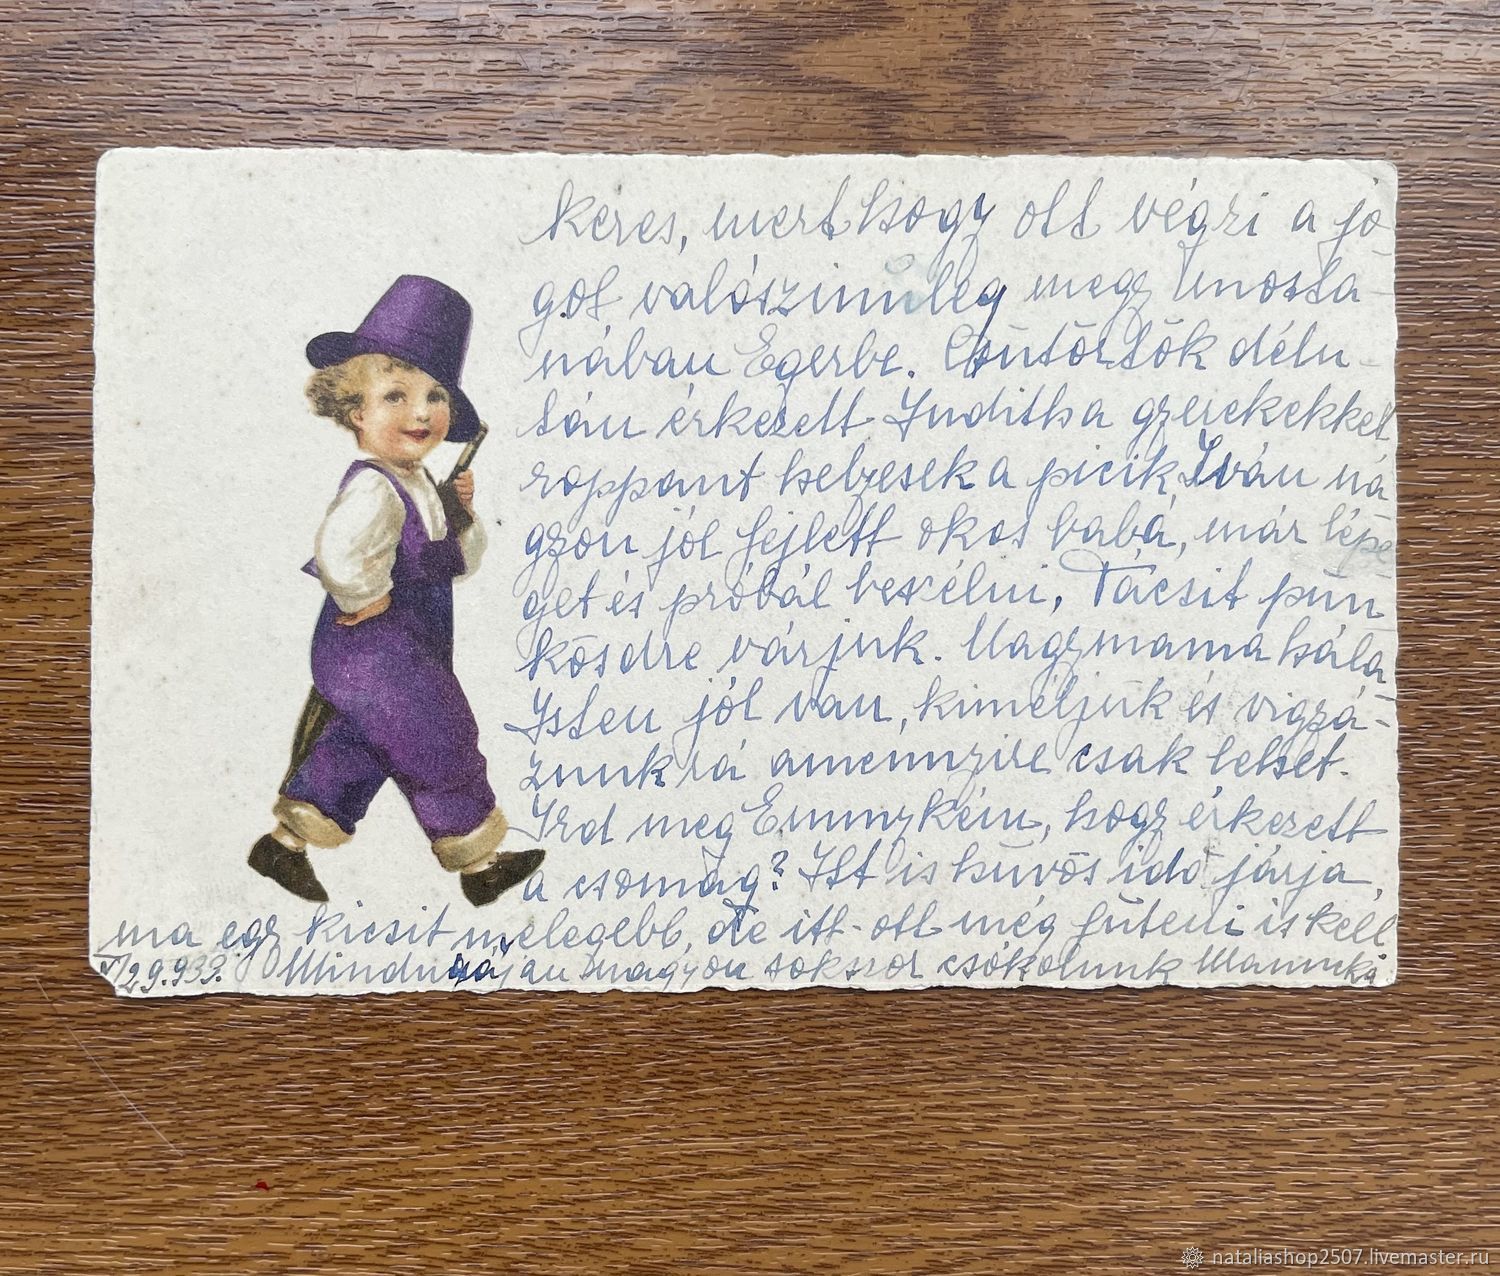 keres, mert hogy ott végzi a jo-
got valószinüleg megy mosta-
nában Egerbe. Csütörtök délu-
tán érkezett Judith a gyerekekkel
roppant helyesek a picik, Iván na
gyon jól fejlett okos baba, már lépe-
get és próbál beszélni, Tacsit pün
kösdre várjuk. Nagymama hála
Isten jól van, kiméljük és vigyá-
zunk rá amennyire csak lehet.
Ird meg Emmykém, hogy érkezett
a csomag? Itt is hüvös idő járja,
ma egy kicsit melegebb, de itt-ott még füteni is kell
V/29.933. Mindnyájan nagyon sokszor csókolunk Mamuka
nataliashop2507.livemaster.ru